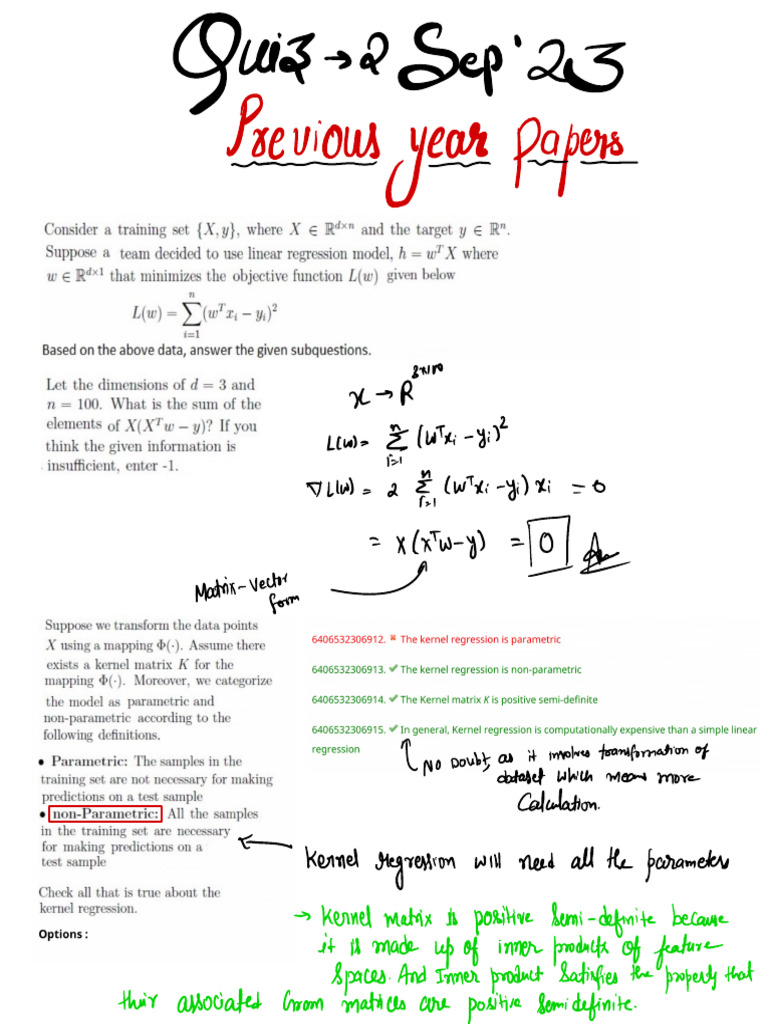 Quiz → 2 Sep'23
Previous year Papers
Consider a training set {X, y}, where X ∈ ℝ^{d×n} and the target y ∈ ℝ^n.
Suppose a team decided to use linear regression model, h = w^T X where
w ∈ ℝ^{d×1} that minimizes the objective function L(w) given below
L(w) = ∑_{i=1}^{n} (w^T x_i − y_i)^2
Based on the above data, answer the given subquestions.
Let the dimensions of d = 3 and
n = 100. What is the sum of the
elements of X(X^T w − y)? If you
think the given information is
insufficient, enter -1.
x → R^{3×100}
L(w) = ∑_{i=1}^{n} (w^T x_i − y_i)^2
∇L(w) = 2 ∑_{i=1}^{n} (w^T x_i − y_i) x_i = 0
= X(X^T w − y) = 0 Ans
Matrix-Vector
form
Suppose we transform the data points
X using a mapping Φ(·). Assume there
exists a kernel matrix K for the
mapping Φ(·). Moreover, we categorize
the model as parametric and
non-parametric according to the
following definitions.
• Parametric: The samples in the
training set are not necessary for making
predictions on a test sample
• non-Parametric: All the samples
in the training set are necessary
for making predictions on a
test sample
Check all that is true about the
kernel regression.
Options :
6406532306912. ✖ The kernel regression is parametric
6406532306913. ✔ The kernel regression is non-parametric
6406532306914. ✔ The Kernel matrix K is positive semi-definite
6406532306915. ✔ In general, Kernel regression is computationally expensive than a simple linear
regression
No Doubt, as it involves transformation of
dataset which means more
Calculation.
Kernel regression will need all the parameters
→ Kernel matrix is positive Semi-definite because
it is made up of inner products of feature
spaces. And Inner product Satisfies the property that
their associated Gram matrices are positive semidefinite.